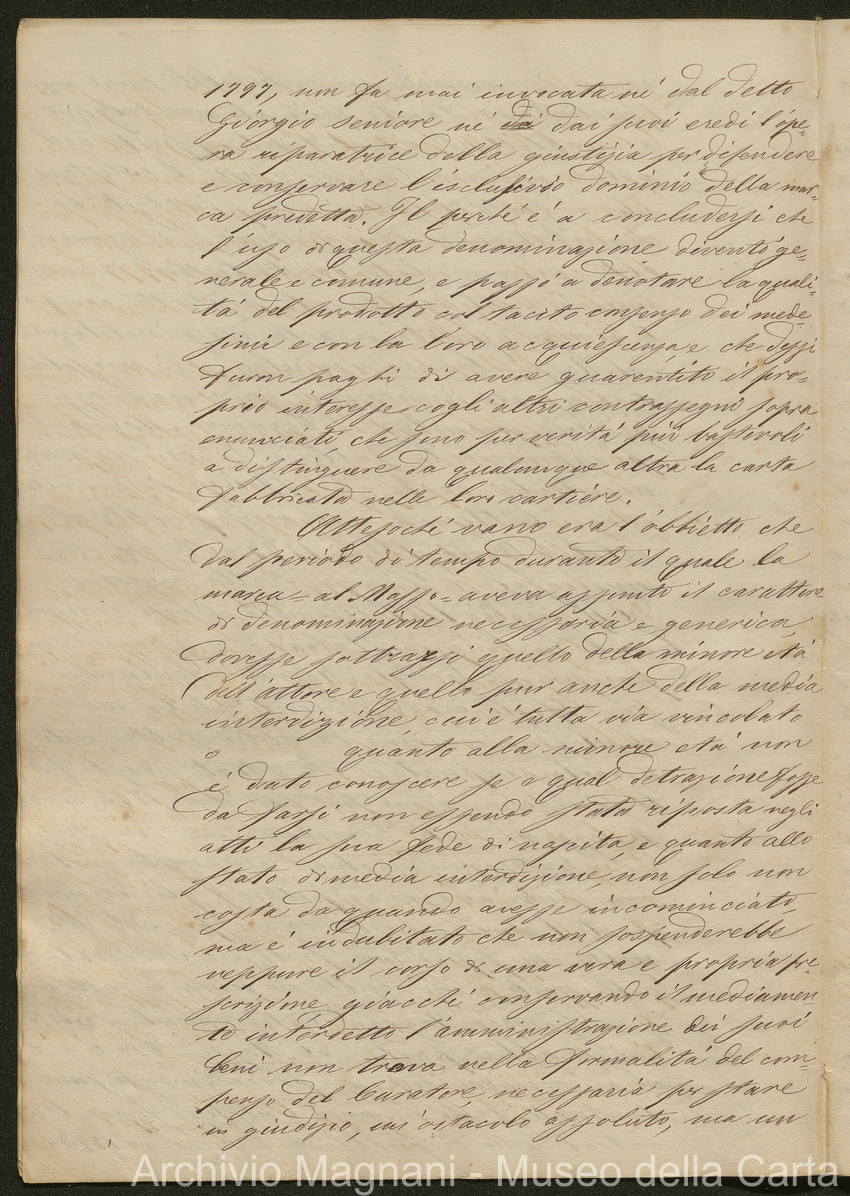 1797, non fu mai invocata né dal detto
Giorgio seniore né da dai suoi eredi l'ope=
ra riparatrice della giustizia per difendere
e conservare l'esclusivo dominio della mar=
ca predetta. Il perché é a concludersi che
l'uso di questa denominazione diventò ge=
nerale e comune, e passò a denotare la quali=
tá del prodotto col tacito consenso dei mede=
simi e con la loro acquiescenza, e che dessi
furon paghi di avere guarentito il pro=
prio interesse cogli altri contrassegni sopra
enunciati, che sono per veritá piú bastevoli
a distinguere da qualunque altra la carta
fabbricata nelle loro cartiere.
Attesoché vano era l'obbietto che
dal periodo di tempo durante il quale la
marca = al Masso = aveva assunto il carattere
di denominazione necessaria e generica,
dovesse sottrarsi quello della minore etá
dell'attore e quello pur anche della media
interdizione, cui é tutta via vincolato
o quanto alla minore etá non
é dato conoscere se e qual detrazione fosse
da farsi non essendo stata riposta negli
atti la sua fede di nascita, e quanto allo
stato di media interdizione, non solo non
costa da quando avesse incominciato,
ma é indubitato che non sospenderebbe
neppure il corso di una vera e propria pre=
scrizione giacché conservando il mediamen=
te interdetto l'amministrazione dei suoi
beni non trova nella formalitá del con=
senso del Curatore, necessaria per stare
in giudizio, un ostacolo assoluto, ma un
Archivio Magnani - Museo della Carta